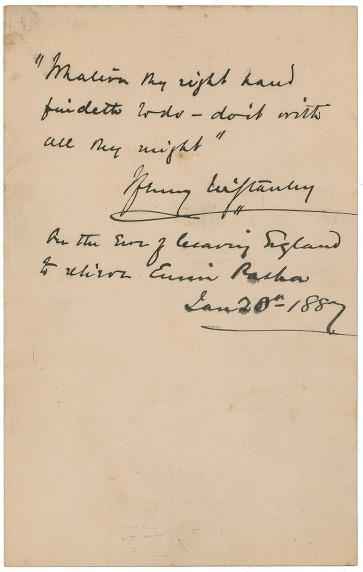 "Whatever thy right hand
findeth to do – do it with
all thy might"
Henry M Stanley
On the Eve of leaving England
to relieve Emin Pasha
Jan 20th 1887